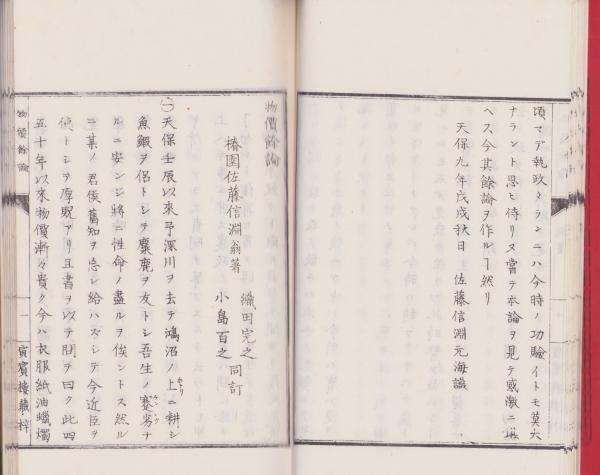 頃マデ執政タランニハ今時ノ功驗イトモ莫大
ナラント思ヒ侍リヌ嘗テ本論ヲ見テ感激ニ堪
ヘス今其餘論ヲ作ルヿ然リ
天保九年戊戌秋日 佐藤信淵元海識
物價餘論
椿園佐藤信淵翁著 織田完之 小島百之 同訂
㊀天保壬辰以來予深川ヲ去テ鴻沼ノ上ニ耕シ
魚鰕ヲ侶トシテ麋鹿ヲ友トシ吾生ノ蹇劣ナ
ルニ安ンジ將ニ性命ノ盡ルヲ俟ントス然ル
ニ某ノ君侯舊知ヲ忘レ給ハズシテ今近臣ヲ
使トシテ厚貺アリ且書ヲ以テ問ヲ曰ク此四
五十年以來物價漸々貴ク今ハ衣服紙油蠟燭
物價餘論
一